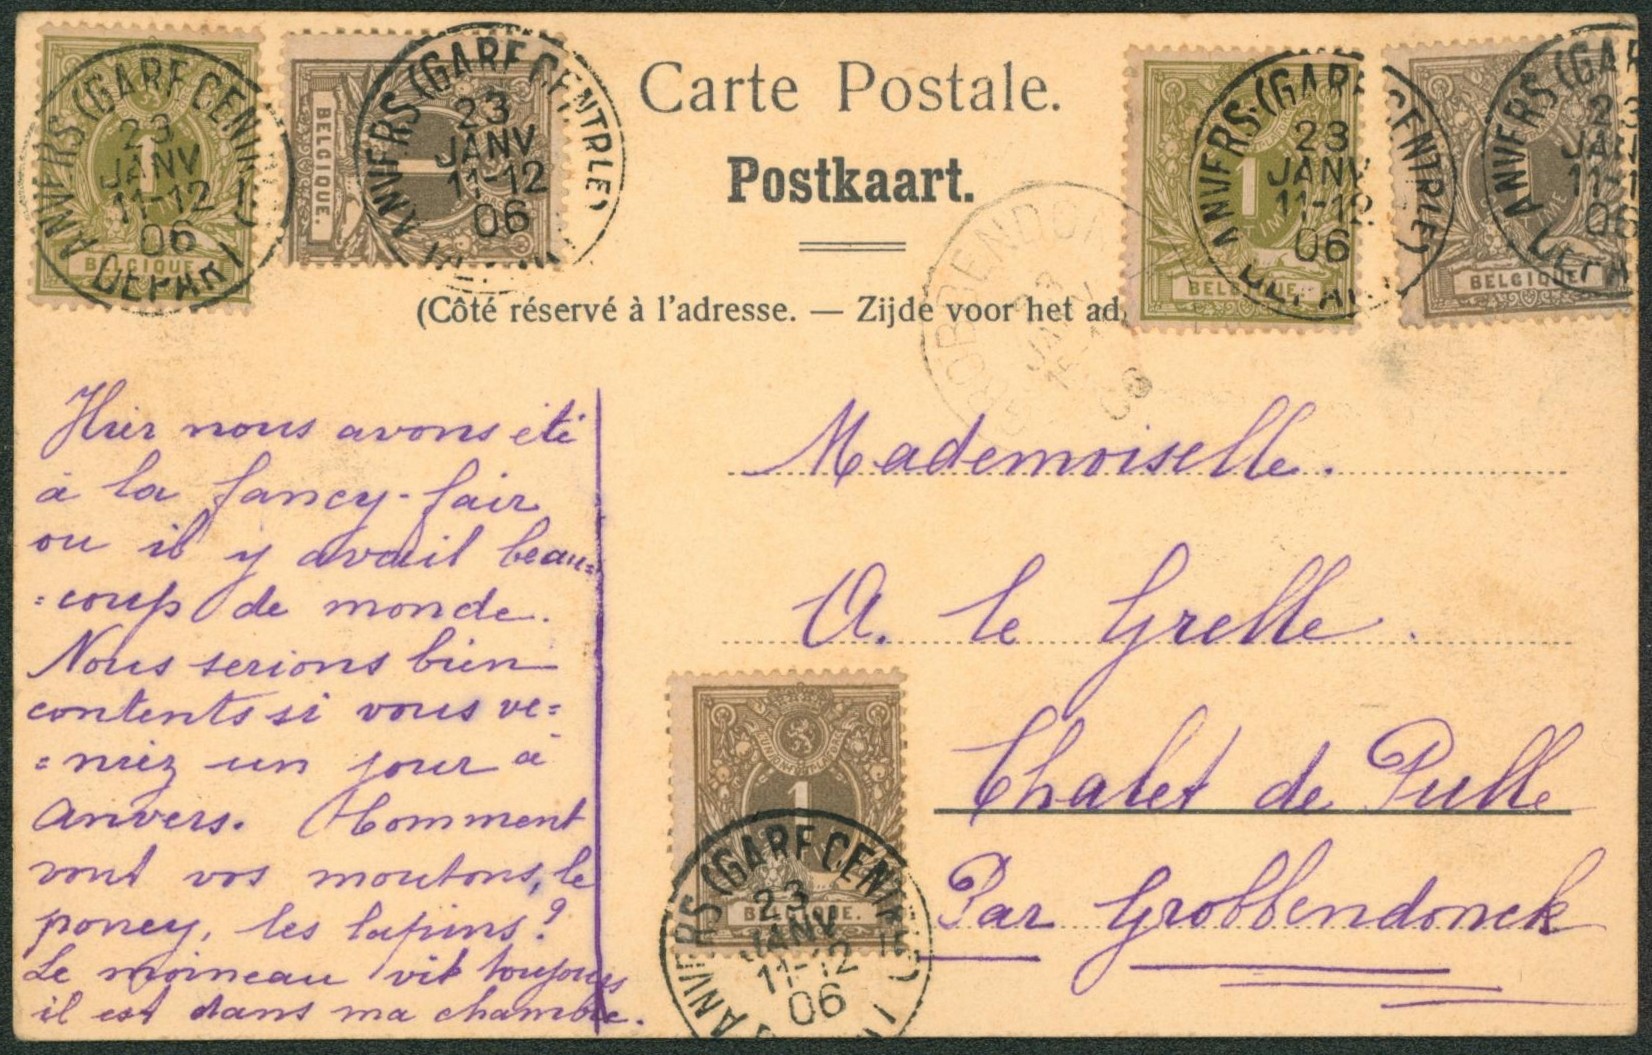 Carte Postale.
Postkaart.
(Côté réservé à l'adresse. — Zijde voor het ad
ANVERS (GARE CENTR
23
JANV
11-12
06
DEPART
1
BELGIQUE
ANVERS (GARE CENTRLE)
23
JANV
11-12
06
1
BELGIQUE.
ANVERS (GARE CENTRLE)
23
JANV
11-12
06
DEPAR
1
BELGIQUE.
ANVERS (GAR
23
JAN
11-1
06
DEPA
BELGIQUE
23
06
Hier nous avons été
à la fancy-fair
ou il y avait beau=
=coup de monde.
Nous serions bien
contents si vous ve=
=niez un jour à
Anvers. Comment
vont vos moutons, le
poney, les lapins?
Le moineau vit toujours
il est dans ma chambre.
Mademoiselle.
A. le Grelle.
Chalet de Pulle
Par Grobbendonck
1
BELGIQUE.
ANVERS (GARE CENTRLE)
23
JANV
11-12
06